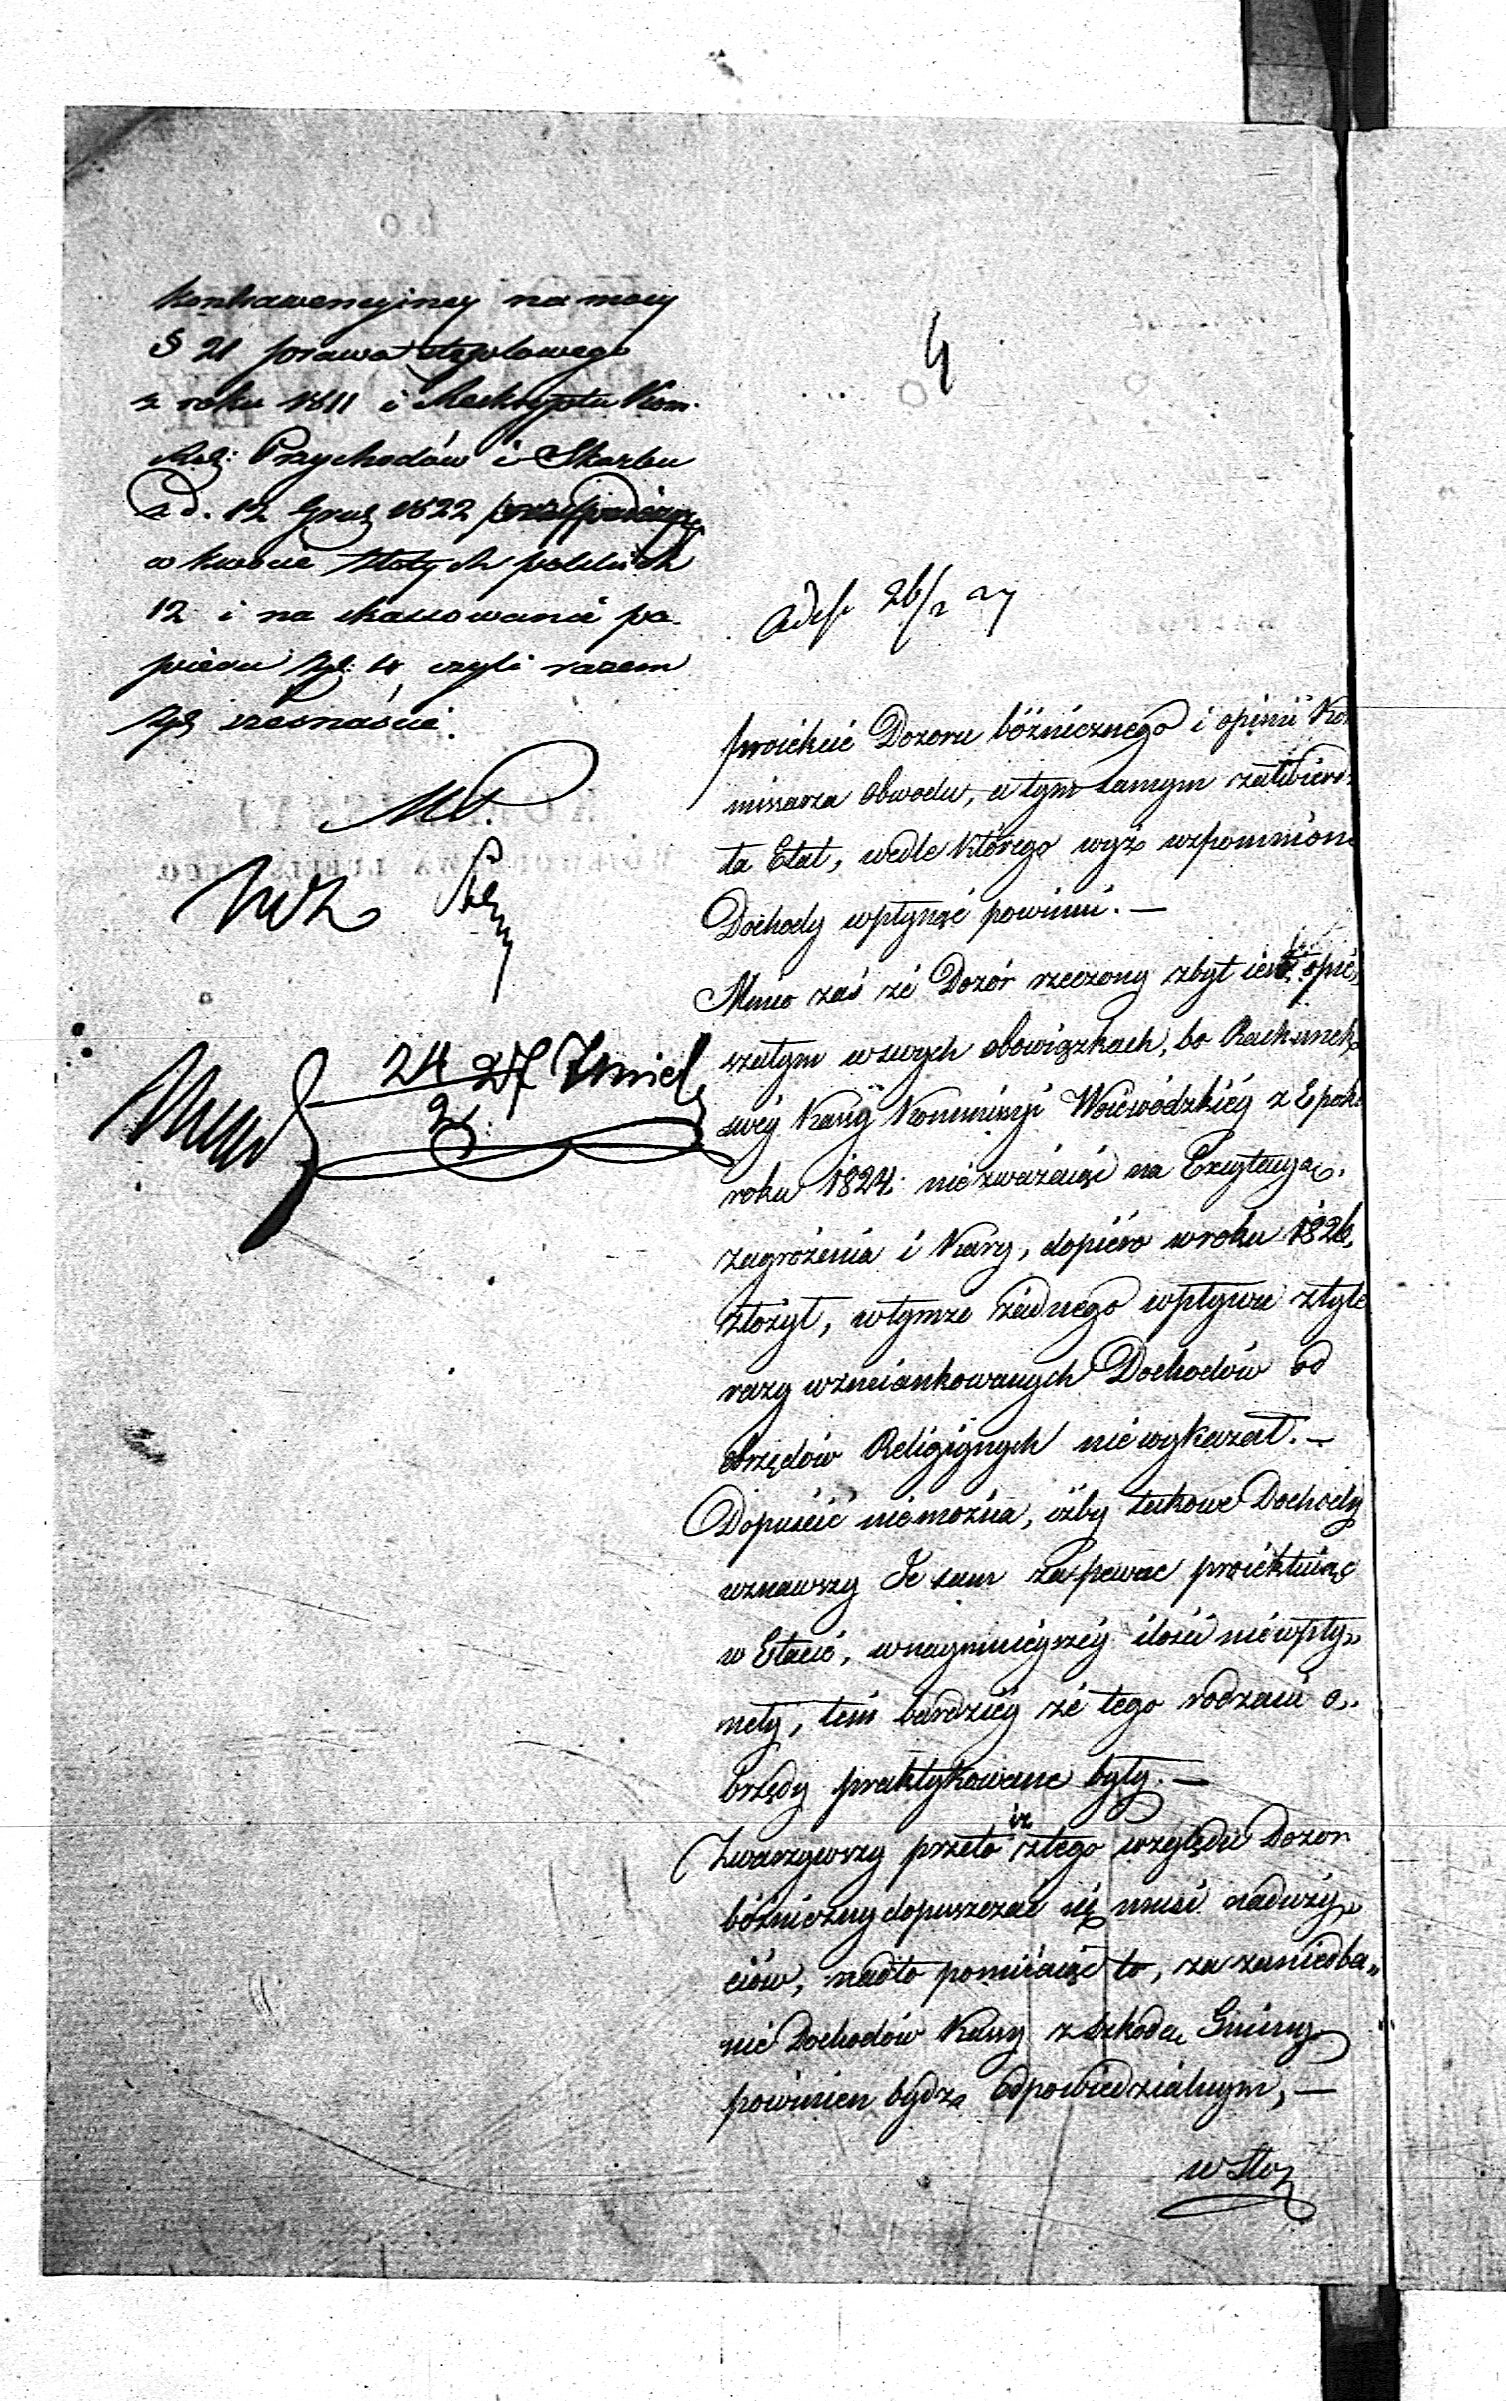 kontrawencyiney na mocy
§ 21 prawa stęplowego
z roku 1811 i Reskryptu Kom.
Przychodów i Skarbu
z d. 12 Grud 1822
w kwocie złotych polskich
12 i na skassowanie pa-
pieru Zył: 4, czyli razem
szesnaście.
24 27
2
4
26/2 27
proiekcie Dozoru bóżnicznego i opinii Ko
missarza Obwodu, a tym samym zatwierdz
ta Etat, wedle którego wyż wspomnione
Dochody wpłynąć powinni. —
Mimo zaś że Dozór rzeczony zbyt iest opie
szałym w swych obowiązkach, bo Rachunek
swéy Kassy Kommissyi Woiewódzkiéy z Epoki
roku 1824. nie zważaiąc na Exzytucye,
zagrożenia i Kary, dopiéro w roku 1826,
złożył, w tymże żadnego wpływu z tyle
razy wzmiankowanych Dochodów od
obrzędów Religiynych nie wykazał. —
Dopuścić nie można, iżby takowe Dochody
uznawszy Je sam za pewne proiektuiąc
w Etacie, w naymnieyszéy ilości nie wpły„
neły, tém bardziéy że tego rodzaiu o„
brzędy praktykowane były. —
Zważywszy przeto iż z tego względu Dozor
bóżniczny dopuszczać się musi nadużyć„
ciów, nadto pomiiaiąc to, za zaniedba„
nie Dochodów Kassy z szkodą Gminy
powinien bydź odpowiedzialnym, —